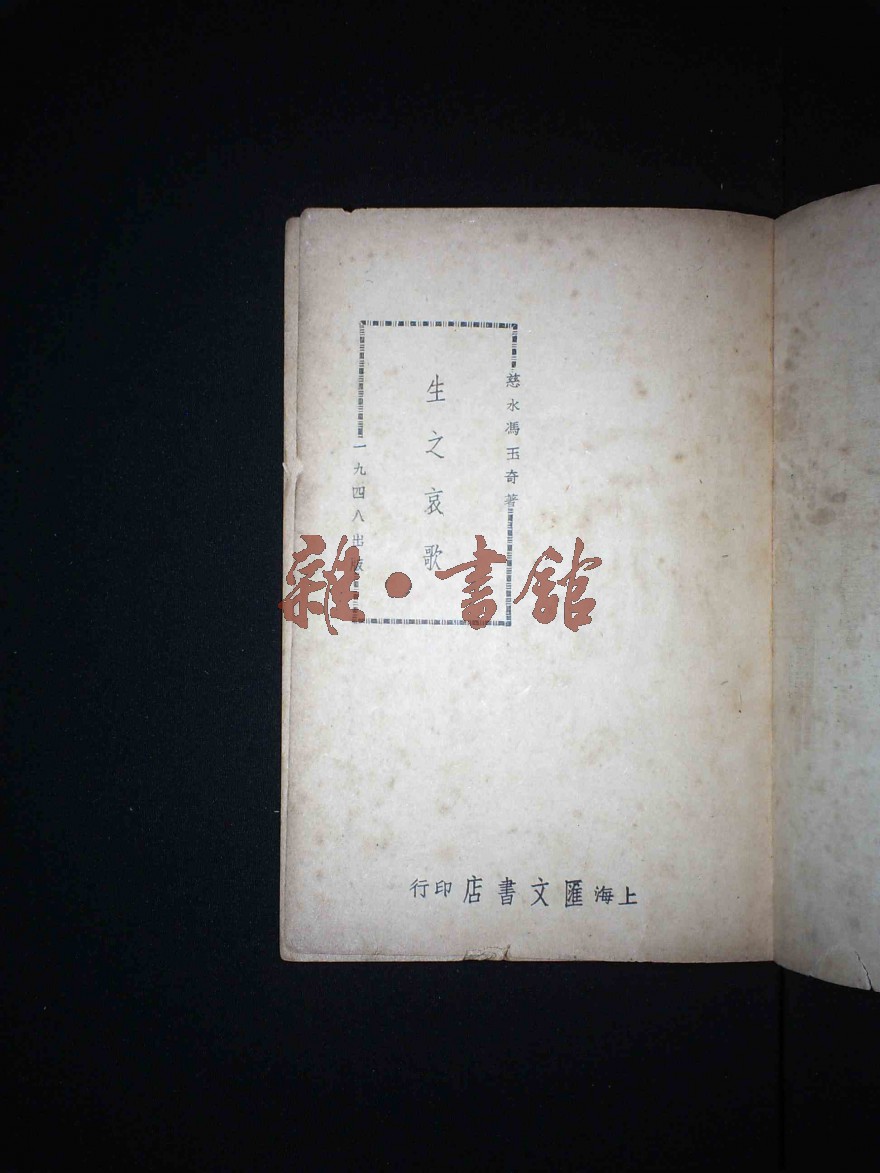 慈水馮玉奇著
生之哀歌
一九四八出版
上海匯文書店印行
雜·書館